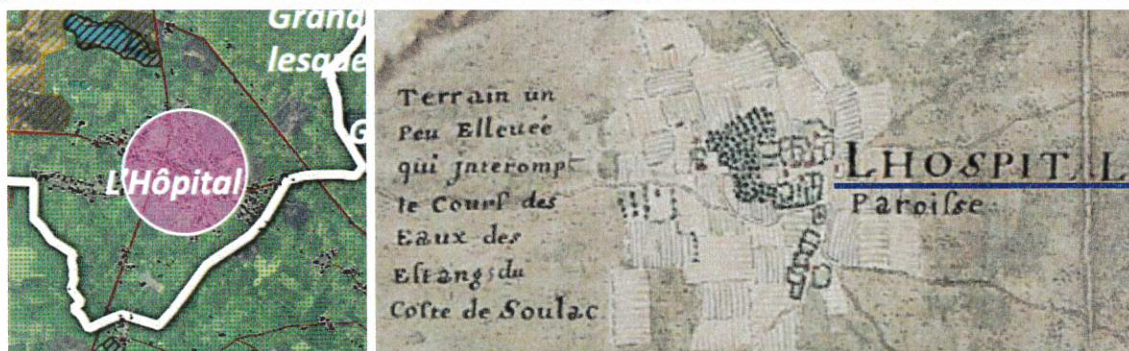 Grand
lesque
G
L'Hôpital
Terrain un
Peu Elleueé
qui Jnterompt
le Courſ des
Eaux des
Eſtangs du
Coſte de Soulac
LHOSPITAL
Paroiſse